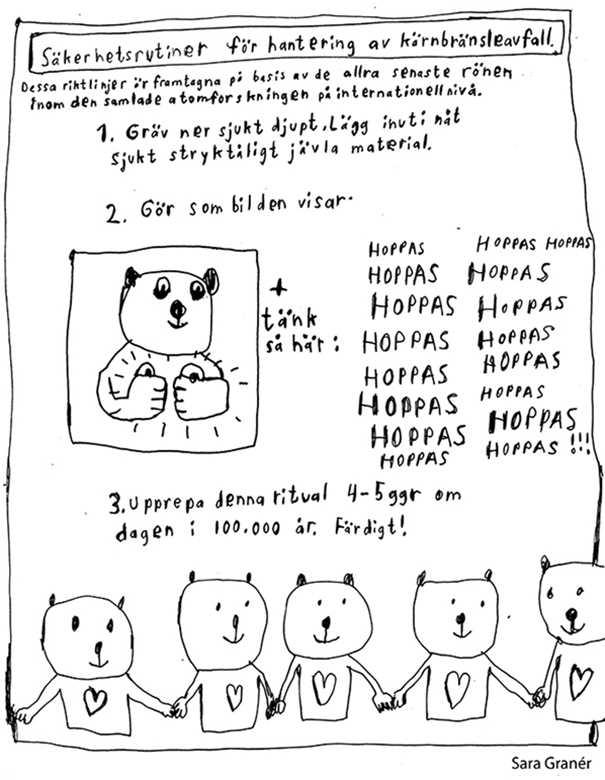 Säkerhetsrutiner för hantering av kärnbränsleavfall.
Dessa riktlinjer är framtagna på basis av de allra senaste rönen
inom den samlade atomforskningen på internationell nivå.
1. Gräv ner sjukt djupt. Lägg inuti nåt
sjukt stryktåligt jävla material.
2. Gör som bilden visar.
+
tänk
så här:
HOPPAS
HOPPAS
HOPPAS
HOPPAS
HOPPAS
HOPPAS
HOPPAS
HOPPAS
HOPPAS HOPPAS
HOPPAS
HOPPAS
HOPPAS
HOPPAS
HOPPAS
HOPPAS
HOPPAS !!!
3. Upprepa denna ritual 4-5 ggr om
dagen i 100.000 år. Färdigt!
Sara Granér